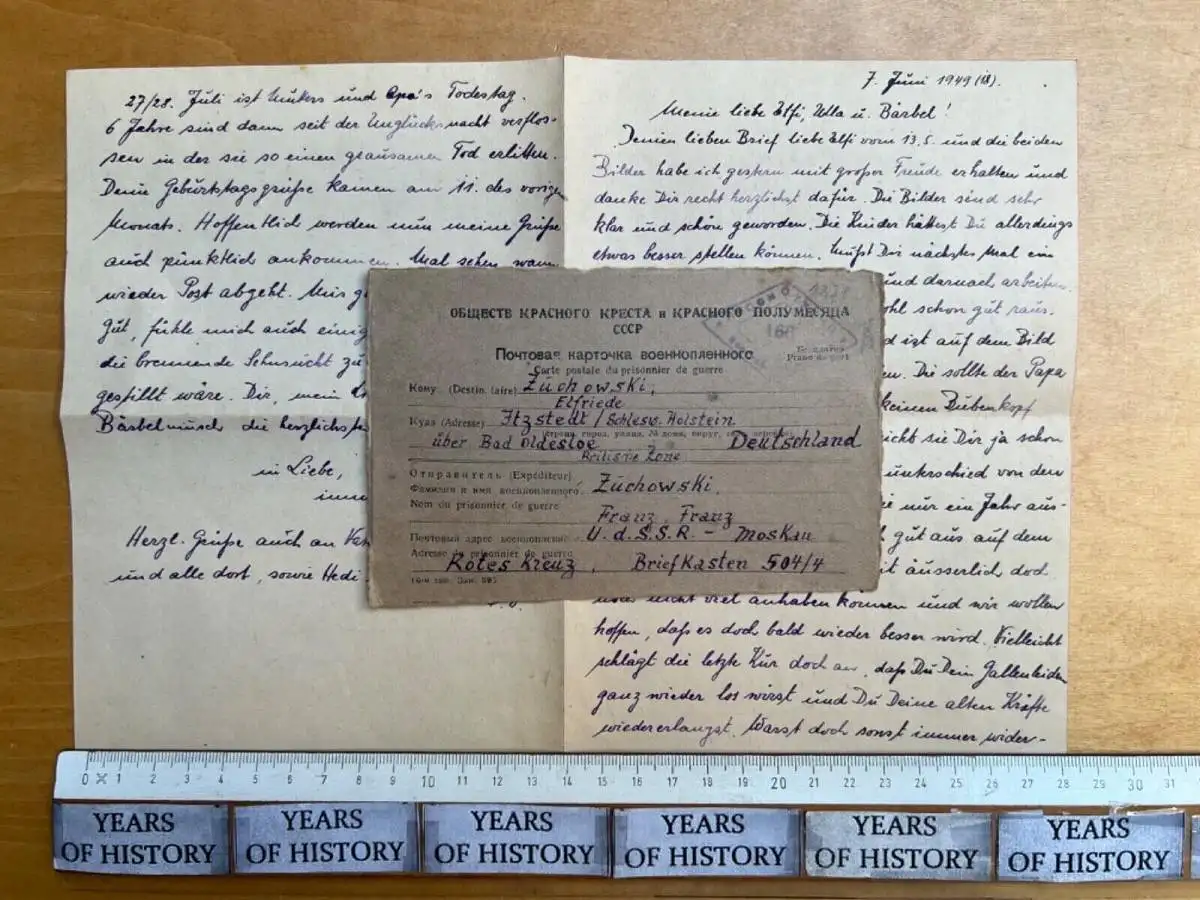 27/28. Juli ist Mutters und Opa's Todestag.
6 Jahre sind dann seit der Unglücksnacht verflos-
sen in der sie so einen grausamen Tod erlitten.
Deine Geburtstagsgrüße kamen am 11. des vorigen
Monats. Hoffentlich werden nun meine Grüße
auch pünktlich ankommen. Mal sehen wann
wieder Post abgeht. Mir
gut, fühle mich auch
die brennende Sehnsucht zu
gestillt wäre. Dir, mein
Bärbel die
in Liebe,
Herzl. Grüße auch an
und alle dort, sowie Hedi
7. Juni 1949 (18).
Meine liebe Elfi, Ulla u. Bärbel!
Deinen lieben Brief liebe Elfi vom 13.5. und die beiden
Bilder habe ich gestern mit großer Freude erhalten und
danke Dir recht herzlichst dafür. Die Bilder sind sehr
klar und schön geworden. Die Kinder hättest Du allerdings
etwas besser stellen können. Mußt Dir nächstes Mal ein
und darnach arbeiten.
schon gut raus.
ist auf dem Bild
Die sollte der Papa
keinen Bubenkopf
sie Dir ja schon
unterschied von dem
nur ein Jahr aus-
gut aus auf dem
äusserlich doch
nicht viel anhaben können und wir wollen
hoffen, daß es doch bald wieder besser wird. Vielleicht
schlägt die letzte Kur doch an, daß Du Dein Gallenleiden
ganz wieder los wirst und Du Deine alten Kräfte
wiedererlangst. Warst doch sonst immer wider-
ОБЩЕСТВ КРАСНОГО КРЕСТА и КРАСНОГО ПОЛУМЕСЯЦА
СССР
Почтовая карточка военнопленного
Carte postale du prisonnier de guerre
Бесплатно
Franc de port
Кому (Destinataire) Zuchowski,
Elfriede
Куда (Adresse) Itzstedt / Schlesw. Holstein
über Bad Oldesloe Deutschland
Britische Zone
Отправитель (Expéditeur)
Фамилия и имя военнопленного Zuchowski,
Nom du prisonnier de guerre
Franz, Franz
Почтовый адрес военнопленного U.d.S.S.R. - Moskau
Adresse du prisonnier de guerre
Rotes Kreuz, Briefkasten 504/4
0 1 2 3 4 5 6 7 8 9 10 11 12 13 14 15 16 17 18 19 20 21 22 23 24 25 26 27 28 29 30 31
YEARS OF HISTORY
YEARS OF HISTORY
YEARS OF HISTORY
YEARS OF HISTORY
YEARS OF HISTORY
YEARS OF HISTORY